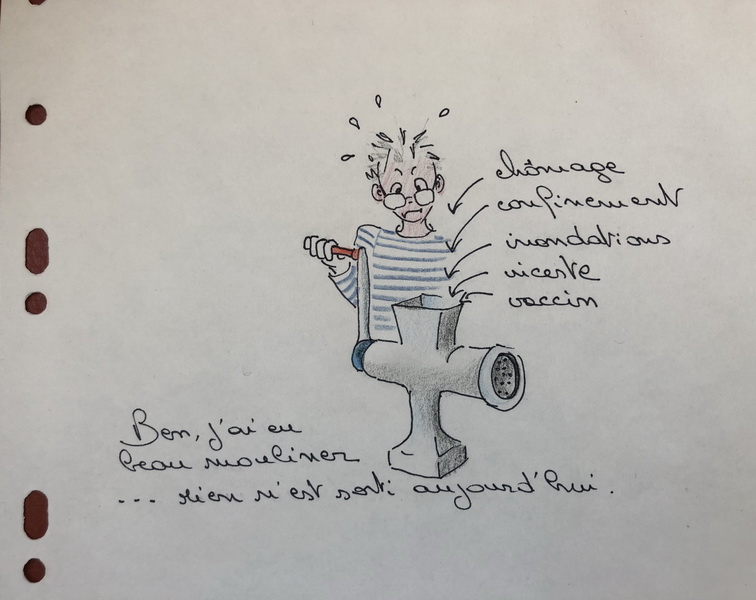 chômage
confinement
inondations
inceste
vaccin
Ben, j'ai eu
beau mouliner
... rien n'est sorti aujourd'hui.